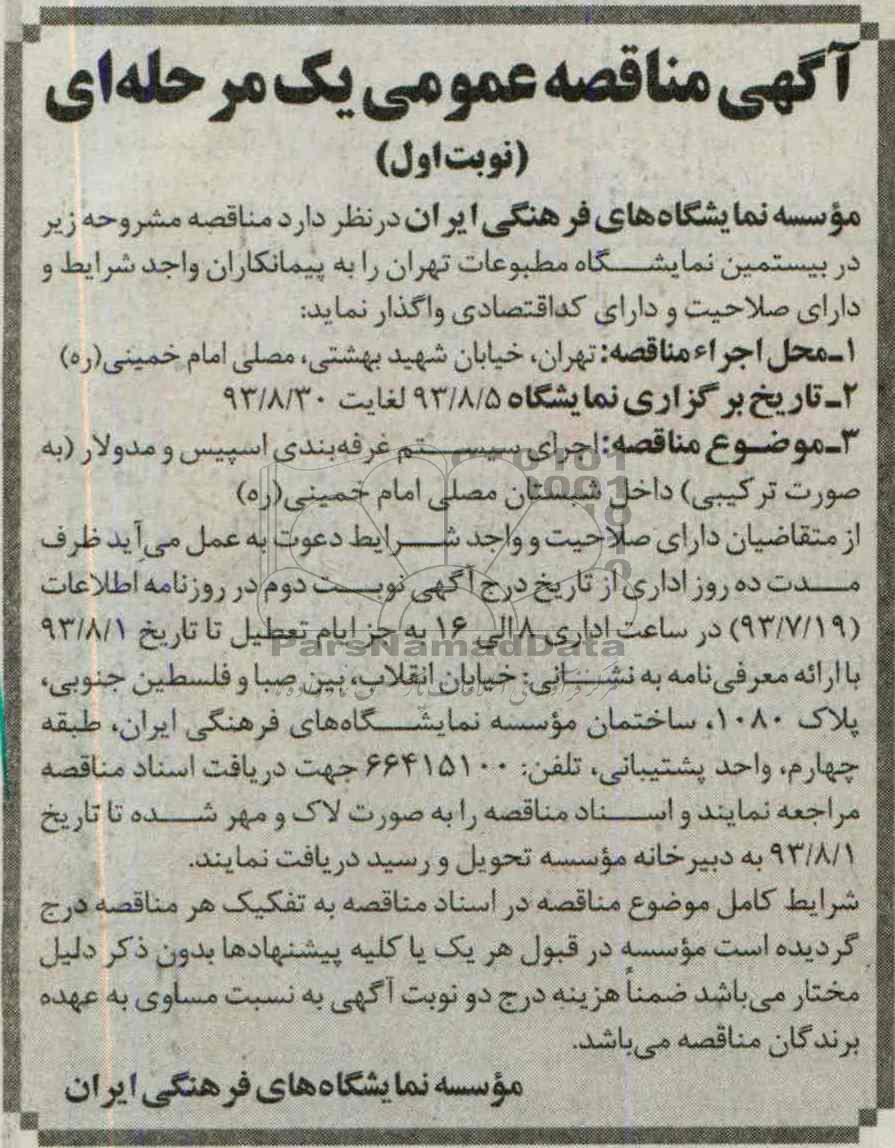 آگهی مناقصه عمومی یک مرحله‌ای
(نوبت اول)
مؤسسه نمایشگاه‌های فرهنگی ایران درنظر دارد مناقصه مشروحه زیر
در بیستمین نمایشگاه مطبوعات تهران را به پیمانکاران واجد شرایط و
دارای صلاحیت و دارای کداقتصادی واگذار نماید:
۱ـ‌محل اجراء مناقصه: تهران، خیابان شهید بهشتی، مصلی امام خمینی(ره)
۲ـ تاریخ برگزاری نمایشگاه ۹۳/۸/۵ لغایت ۹۳/۸/۳۰
۳ـ‌موضوع مناقصه: اجرای سیستم غرفه‌بندی اسپیس و مدولار (به
صورت ترکیبی) داخل شبستان مصلی امام خمینی(ره)
از متقاضیان دارای صلاحیت و واجد شرایط دعوت به عمل می‌آید ظرف
مدت ده روز اداری از تاریخ درج آگهی نوبت دوم در روزنامه اطلاعات
(۹۳/۷/۱۹) در ساعت اداری ۸ الی ۱۶ به جز ایام تعطیل تا تاریخ ۹۳/۸/۱
با ارائه معرفی‌نامه به نشانی: خیابان انقلاب، بین صبا و فلسطین جنوبی،
پلاک ۱۰۸۰، ساختمان مؤسسه نمایشگاه‌های فرهنگی ایران، طبقه
چهارم، واحد پشتیبانی، تلفن: ۶۶۴۱۵۱۰۰ جهت دریافت اسناد مناقصه
مراجعه نمایند و اسناد مناقصه را به صورت لاک و مهر شده تا تاریخ
۹۳/۸/۱ به دبیرخانه مؤسسه تحویل و رسید دریافت نمایند.
شرایط کامل موضوع مناقصه در اسناد مناقصه به تفکیک هر مناقصه درج
گردیده است مؤسسه در قبول هر یک یا کلیه پیشنهادها بدون ذکر دلیل
مختار می‌باشد ضمناً هزینه درج دو نوبت آگهی به نسبت مساوی به عهده
برندگان مناقصه می‌باشد.
مؤسسه نمایشگاه‌های فرهنگی ایران
ParsNamadData